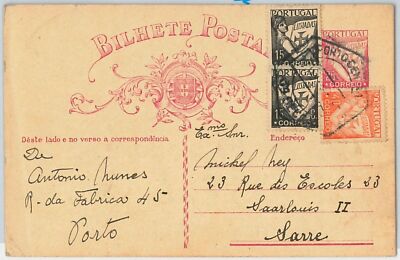 BILHETE POSTAL
PORTUGAL
LUSIADAS
15
CORREIO
PORTUGAL
LUSIADAS
15
CORREIO
CORREIO
PORTUGAL
Dêste lado e no verso a correspondência
Endereço
Exmo Snr.
De
Antonio Nunes
R. da Fabrica 45
Porto
Michel Ney
23 Rue des Escoles 23
Saarlouis II
Sarre